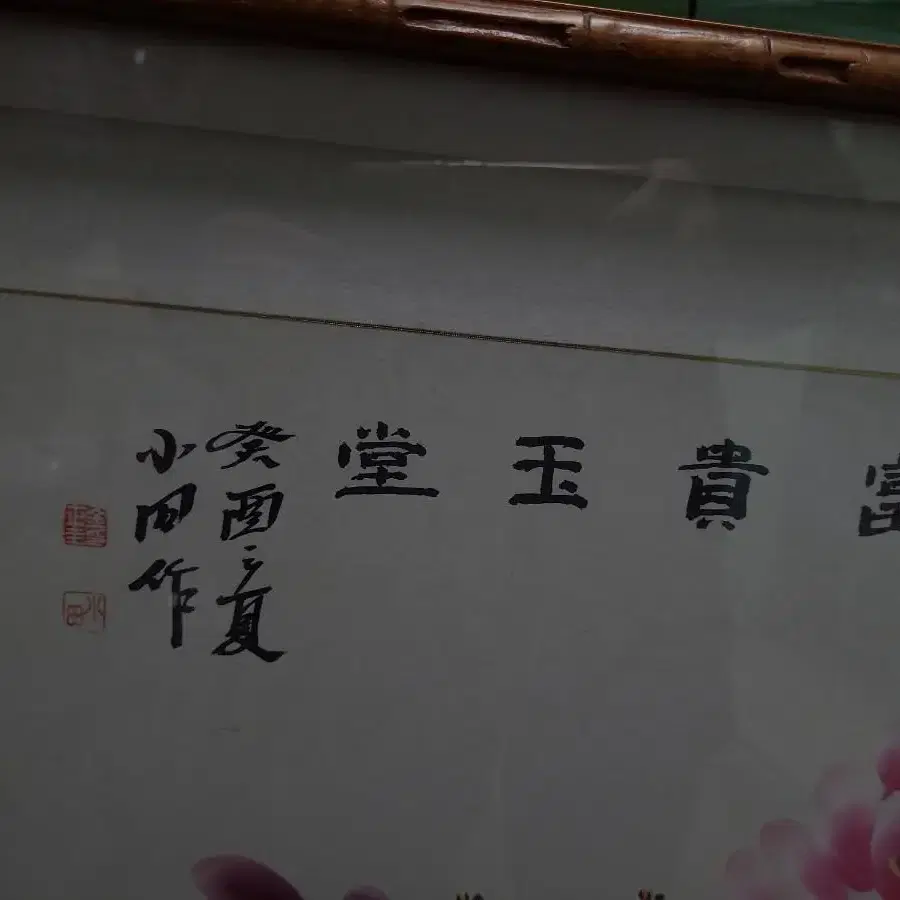 富貴玉堂
癸酉之夏
小田作